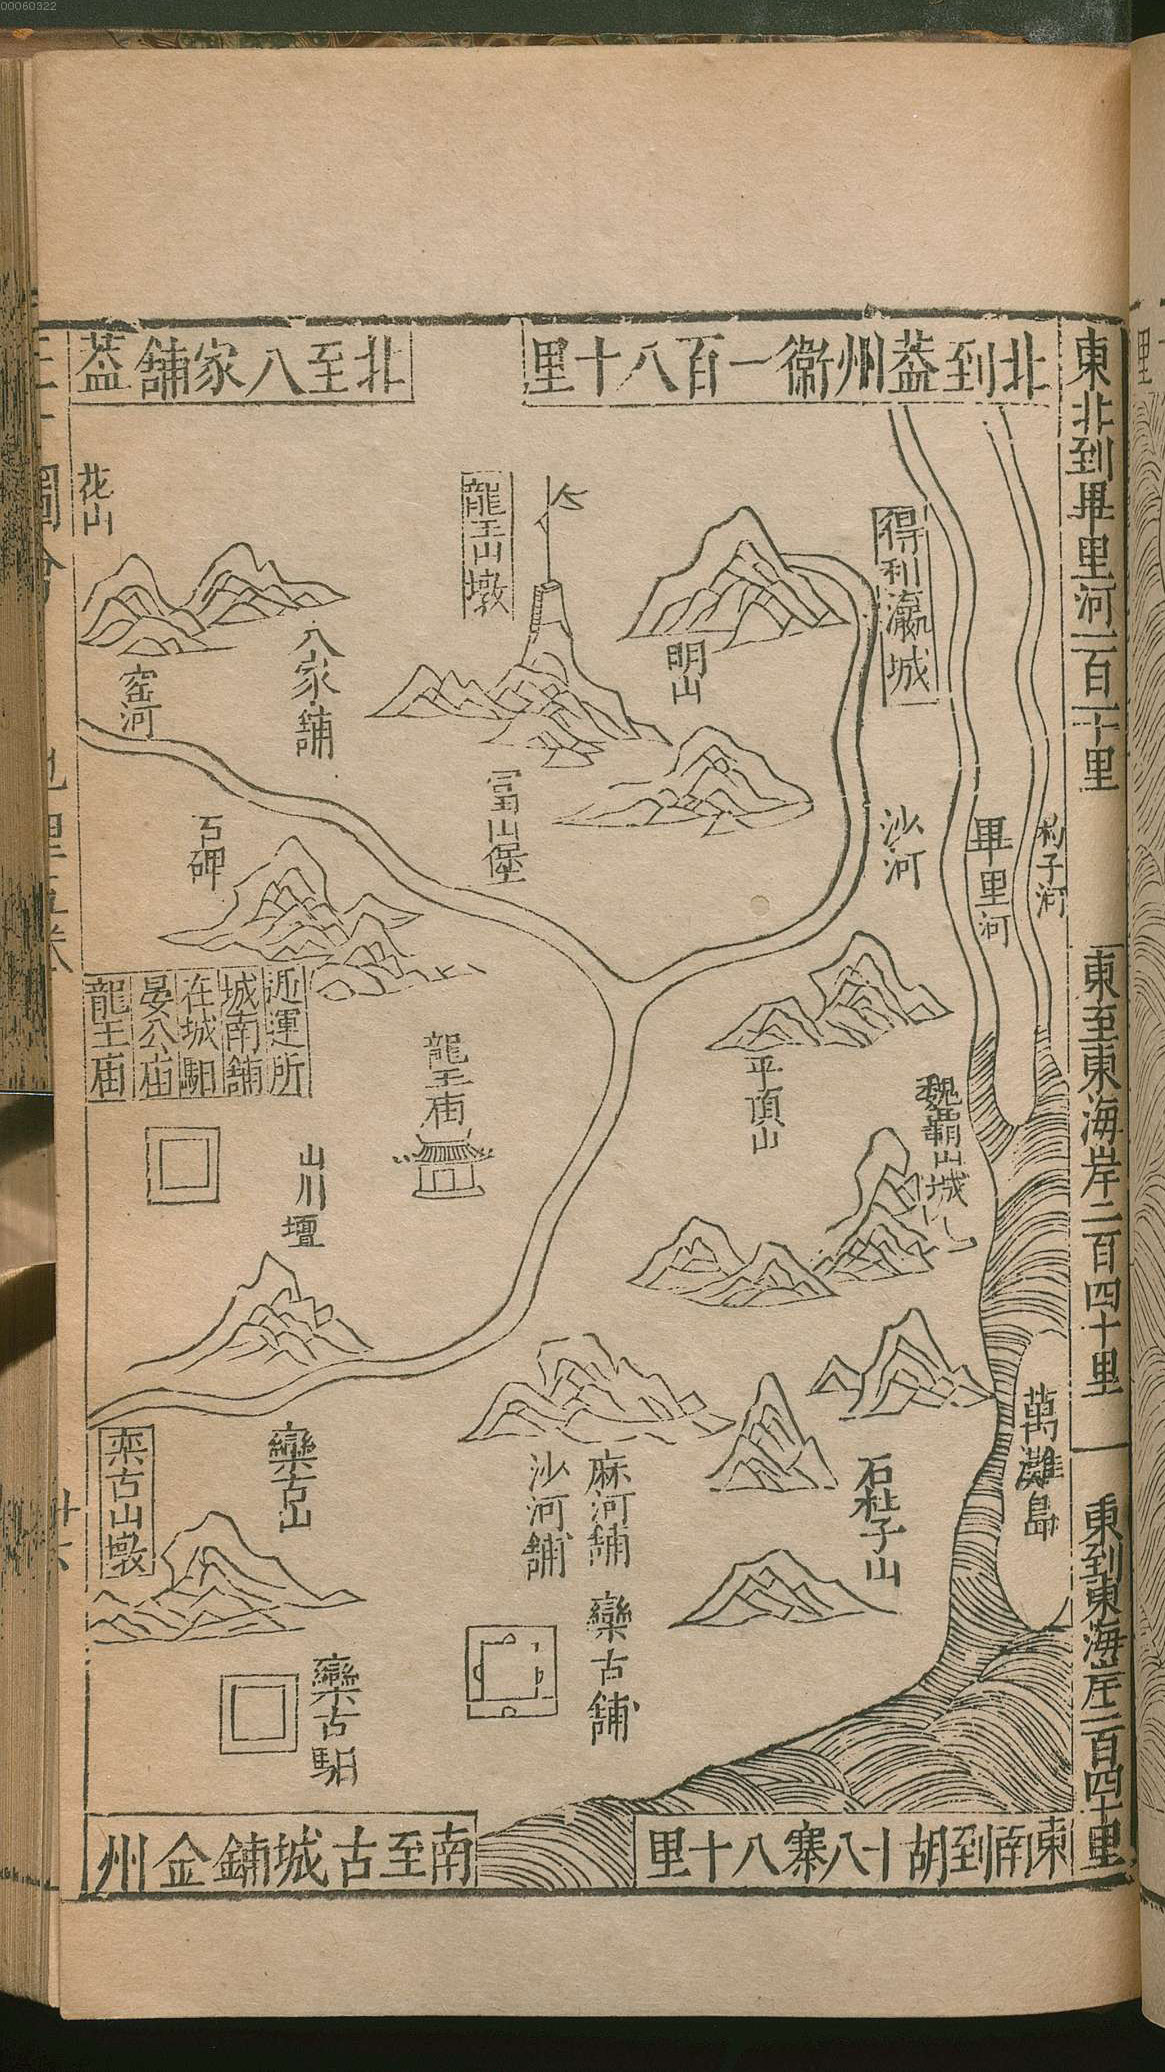 00060322
東北到畢里河一百二十里
東至東海岸二百四十里
東到東海岸二百四十里
北到蓋州衛一百八十里
北至八家舖蓋
得利瀛城
杓子河
畢里河
沙河
明山
龍王山墩
富山堡
花山
八家舖
窑河
石碑
平頂山
魏霸山城
龍王庙
迎運所
城南舖
在城馹
晏公庙
龍王庙
山川壇
萬灘島
石杜子山
麻河舖
沙河舖
欒古山
栾古山墩
欒古舖
欒古馹
東南到胡十八寨八十里
南至古城鋪金州
三才圖會
地理五卷
廿六